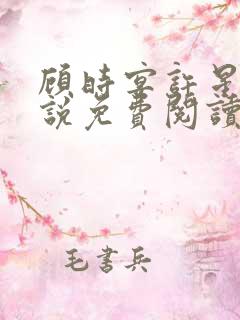 顾時宴許星
說免費閱讀
毛書兵